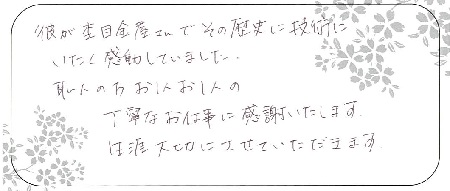 彼が杢目金屋さんでその歴史に技術に
いたく感動していました。
職人の方お一人お一人の
丁寧なお仕事に感謝いたします。
生涯大切にさせていただきます。